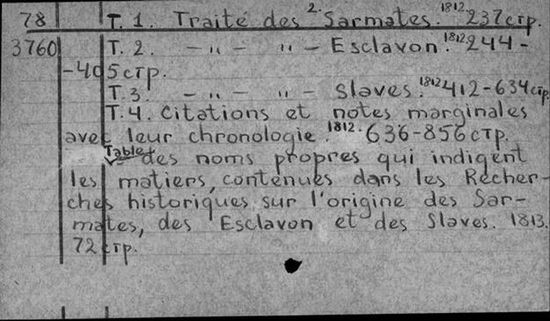 78 T. 1. Traité des 2. Sarmates. 1812. 237 стр.
3760 T. 2. - „ - „ - Esclavon. 1812. 244 -
- 405 стр.
T. 3. - „ - „ - Slaves. 1812. 412 - 634 стр.
T. 4. Citations et notes marginales
avec leur chronologie. 1812. 636-856 стр.
Table des noms propres qui indigent
les matiers, contenues dans les Recher-
ches historiques sur l'origine des Sar-
mates, des Esclavon et des Slaves. 1813.
72 стр.